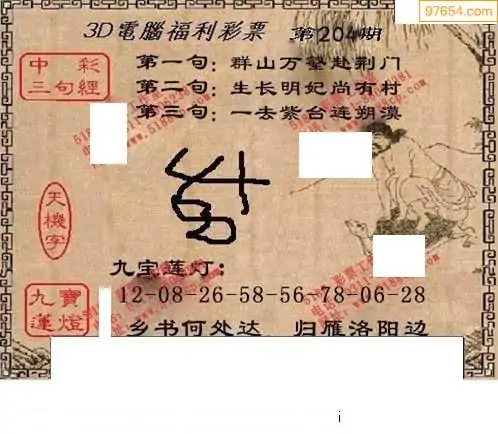 97654.com
3D電腦福利彩票 第204期
中彩三句經
第一句：群山万壑赴荆门
第二句：生长明妃尚有村
第三句：一去紫台连朔漠
天機字
九宝莲灯：
九寶蓮燈
12-08-26-58-56-78-06-28
乡书何处达 归雁洛阳边
i